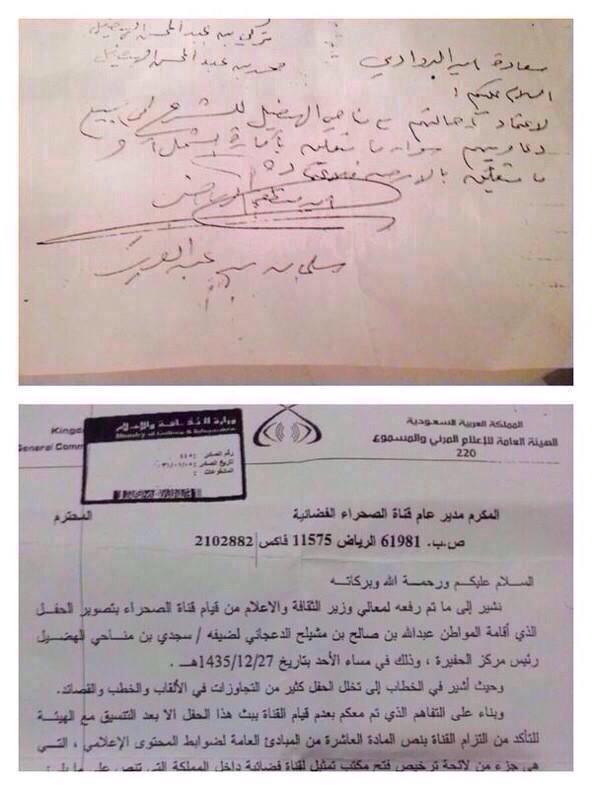 تركي بن عبد المحسن الهضيل
محمد بن عبد المحسن الهضيل
سعادة امير الدوادمي
السلام عليكم
لاعتماد احالتهم مناحي الهضيل للشرع في جميع
دعاويهم سواء ما متعلقه بأمارة
ما متعلقه
سلمان بن عبد العزيز
المملكة العربية السعودية
الهيئة العامة للإعلام المرئي والمسموع
220
Kingd
General Comm
وزارة الثقافة والإعلام
Ministry of Culture & Information
رقم الصادر :
تاريخ الصادر :
المشفوعات :
المكرم مدير عام قناة الصحراء الفضائية المحترم
ص.ب. 61981 الرياض 11575 فاكس 2102882
السلام عليكم ورحمة الله وبركاته
نشير إلى ما تم رفعه لمعالي وزير الثقافة والاعلام من قيام قناة الصحراء بتصوير الحفل
الذي أقامة المواطن عبدالله بن صالح بن مشيلح الدعجاني لضيفه / سجدي بن مناحي الهضيل
رئيس مركز الحفيرة ، وذلك في مساء الأحد بتاريخ 1435/12/27هـ .
وحيث أشير في الخطاب إلى تخلل الحفل كثير من التجاوزات في الألقاب والخطب والقصائد.
وبناء على التفاهم الذي تم معكم بعدم قيام القناة ببث هذا الحفل الا بعد التنسيق مع الهيئة
للتأكد من التزام القناة بنص المادة العاشرة من المبادئ العامة لضوابط المحتوى الإعلامي ، التي
هي جزء من لائحة ترخيص فتح مكتب تمثيل لقناة فضائية داخل المملكة التي تنص على ما يلي :